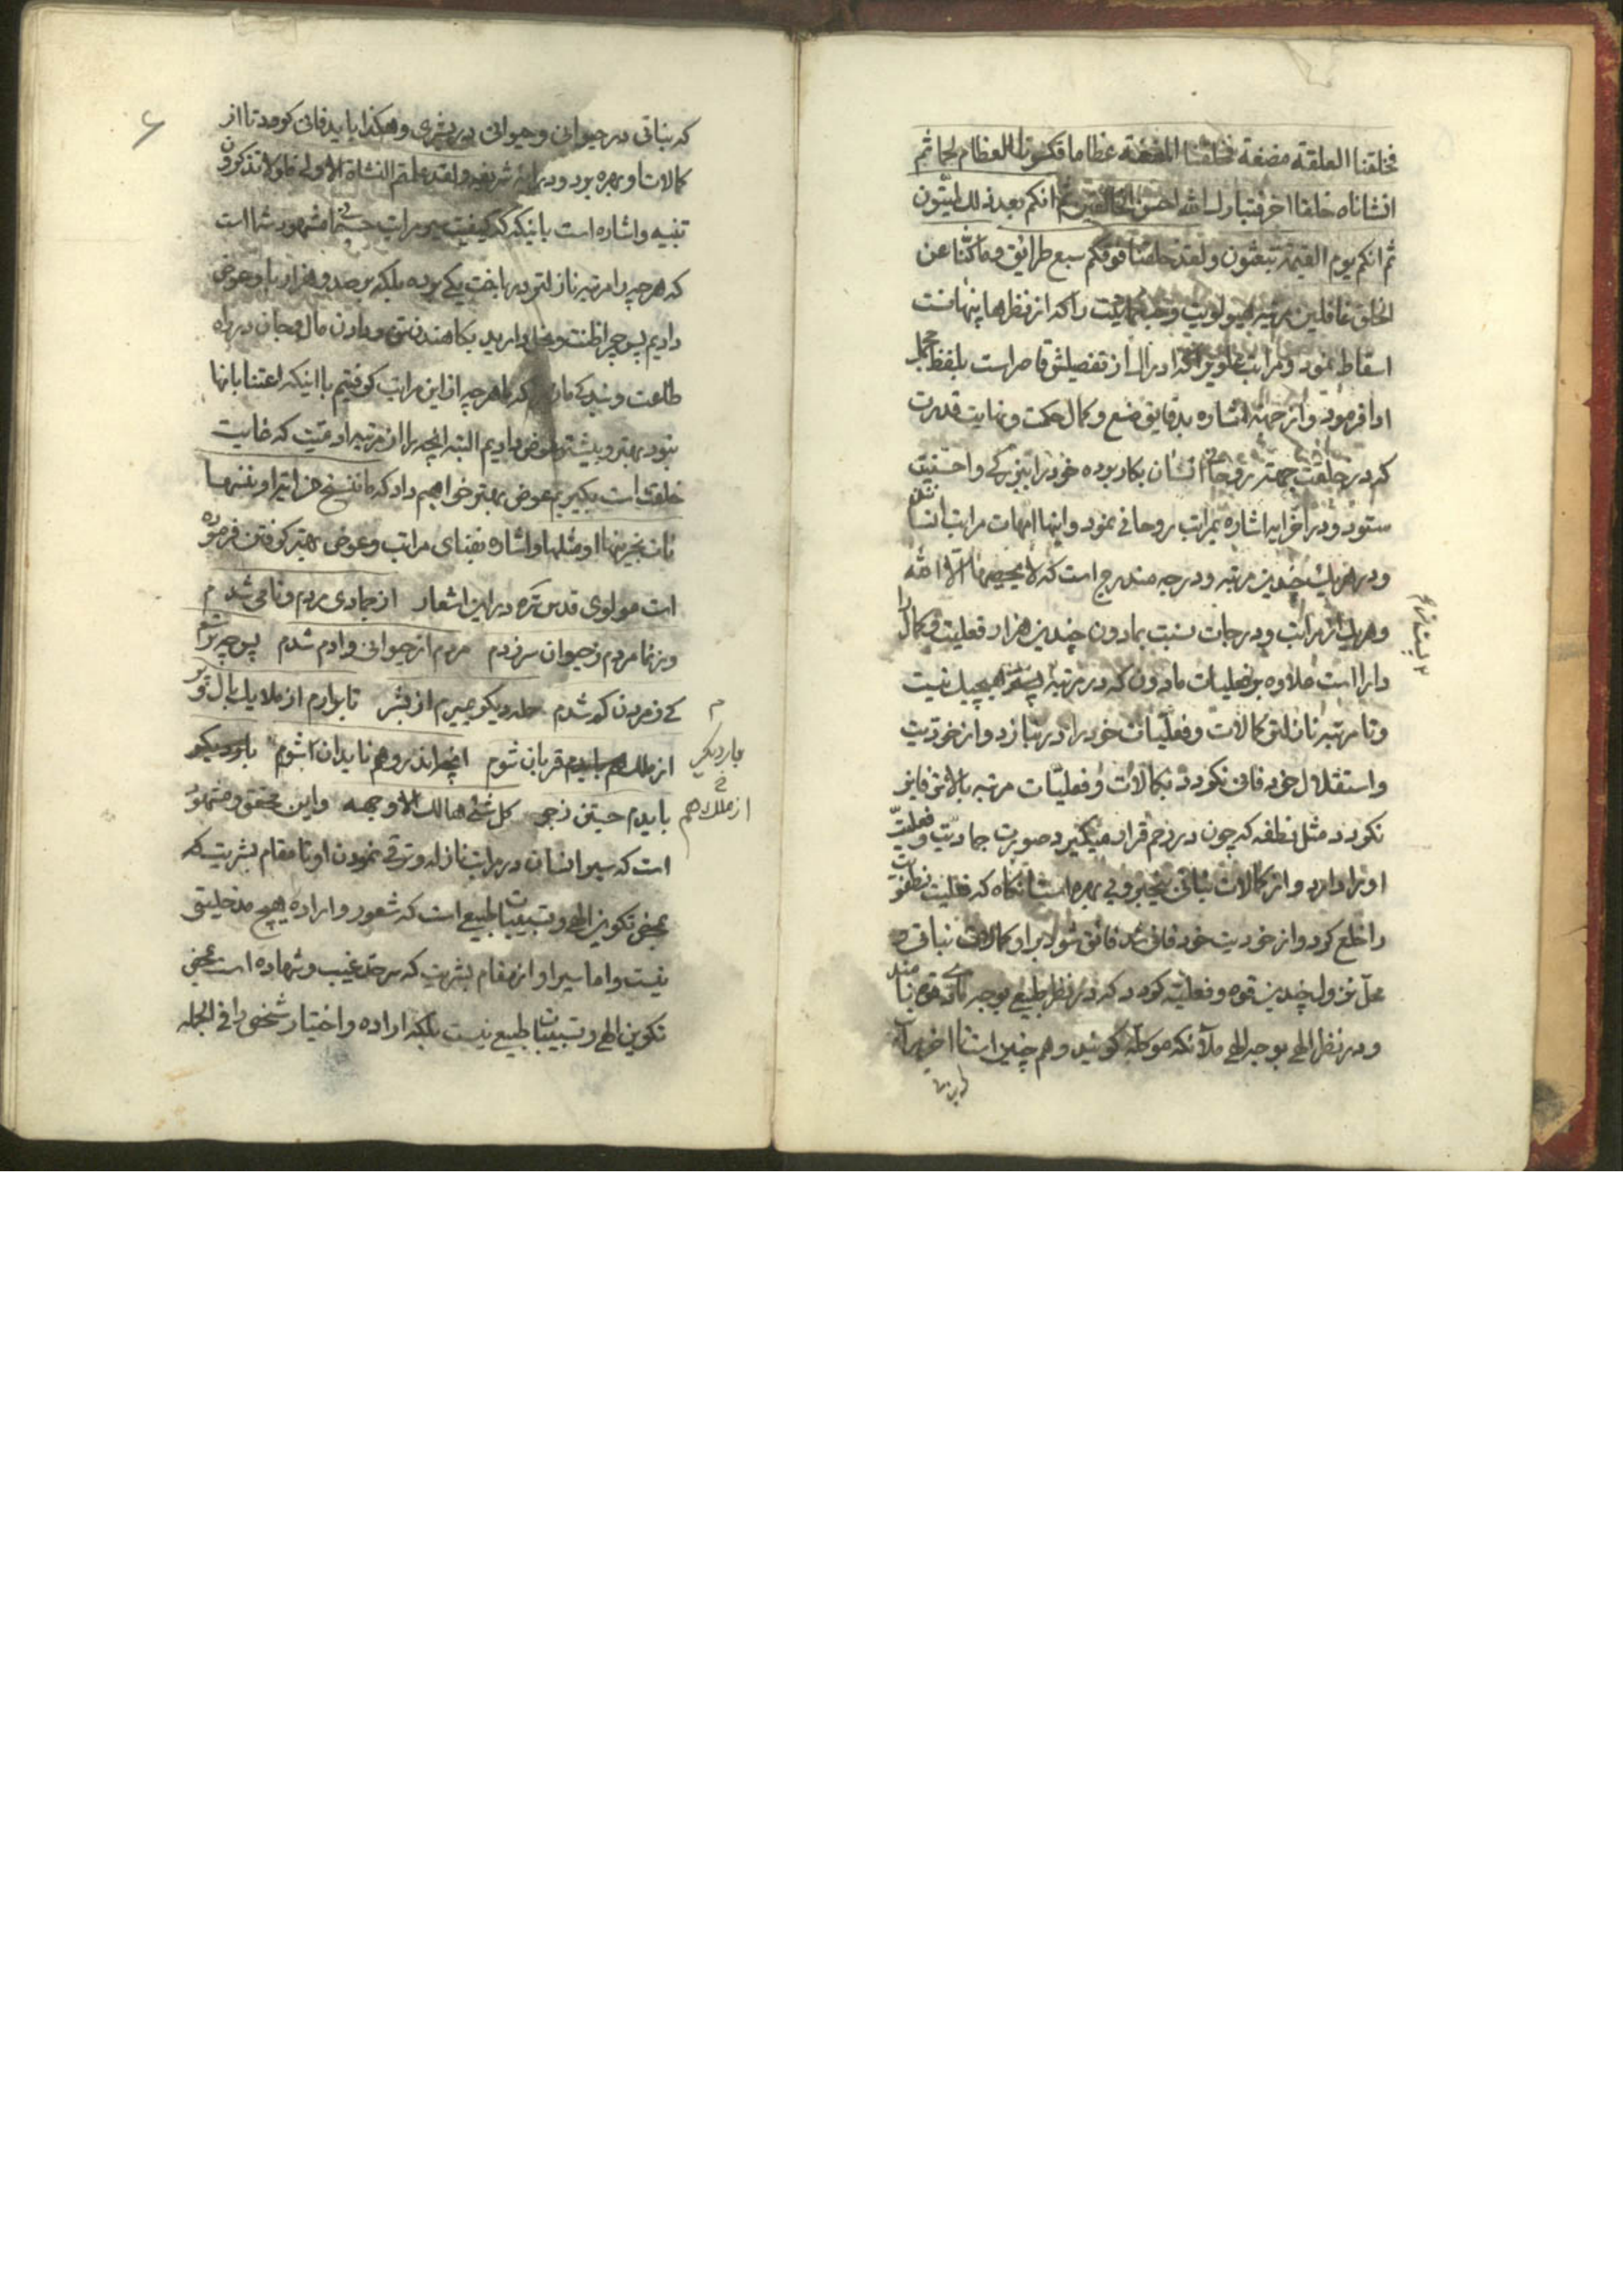 فخلقنا العلقة مضغة فخلقنا المضغة عظاما فکسونا العظام لحما ثم
انشاناه خلقا اخر فتبارك الله احسن الخالقین ثم انکم بعد ذلك لمیتون
ثم انکم یوم القیمة تبعثون ولقد خلقنا فوقکم سبع طرائق وما کنا عن
الخلق غافلین مرتبه هیولویت و را که از نظرها پنهانست
اسقاط نمود و مراتب را که ادراك از تفصیلش قاصر است بلفظ مجمل
ادا فرمود و از جهة اشاره بدقایق صنع و کمال حکمت و نهایت قدرت
که در خلقت جهة روحانی انسان بکار بوده خود را ببزرکی و احسنیت
ستود و در اخر ایه اشاره بمراتب روحانی نمود و اینها امهات مراتب انسانی
و در هر یك چندین مرتبه و درجه مندرج است که لا یحصیها الا الله
و هر یك از مراتب و درجات نسبت بمادون چندین هزار فعلیت و کمال را
دارا است علاوه بر فعلیات مادون که در مرتبه نیست
و تا مرتبه نازلتر کمالات و فعلیات خود را در نبازد و از خودیت
و استقلال خود فانی نکردد بکمالات و فعلیات مرتبه بالاتر فایز
نکردد مثل نطفه که چون در رحم قرار میکیرد صورت جمادیت و فعلیت
او را دارد و از کمالات نباتی بیخبر و بی بهره است انکاه که فعلیت نطفویت
را خلع کرد و از خودیت خود فانی شد فائق شود براو کمالات نباتی و
محل نزول چندین قوه و فعلیه کردد که در نظر طبیعی بوجه قوه نامند
و در نظر الهی بوجه الهی ملآئکه موکله کویند و هم چنین است تا اخر مراتب
که نباتی در حیوانی و حیوانی در بشری و هکذا باید فانی کردد تا از
کمالات او بهره برد و در ایهٔ شریفه ولقد علمتم النشاة الاولی فلولا تذکرون
تنبیه و اشاره است باینکه که کیفیت سیر مراتب مشهود شما است
که هر چه را مرتبه نازلتر در باخت یکی بوده بلکه بر صد و هزار باو عوض
دادیم پس چرا ظنت و بخل دارید بکاهیدن تن و دادن مال و جان در راه
طاعت و بندکی ما که ما هر چه از این مراتب کرفتیم با اینکه اعتنا بانها
نبود بهتر و بیشتر عوض دادیم البته انچه را از مرتبه ادمیت که غایت
خلقت است بکیریم عوض بهتر خواهیم داد که ما ننسخ من ایة او ننسها
نات بخیر منها او مثلها و اشاره بفنای مراتب و عوض بهتر کرفتن فرموده
است مولوی قدس سره در این اشعار از جمادی مردم و نامی شدم
وز نما مردم ز حیوان سر زدم مردم از حیوانی و ادم شدم پس چه ترسم
کی ز مردن کم شدم حمله دیکر بمیرم از بشر تا برارم از ملایك بال و پر
بار دیکر
از ملك هم
از ملك هم بایدم قربان شوم انچه اندر وهم ناید ان شوم بار دیکر
بایدم جستن ز جو کل شئ هالك الا وجهه و این محقق و مشهود
است که سیر انسان در مراتب نازله و ترقی نمودن او تا مقام بشریت که
بمحض تکوین الهی و تسبیبات طبیعی است که شعور و اراده را هیچ مدخلیتی
نیست و اما سیر او از مقام بشریت که سرحد غیب و شهاده است بمحض
تکوین الهی و تسبیبات طبیعی نیست بلکه اراده و اختیار شخص را فی الجمله